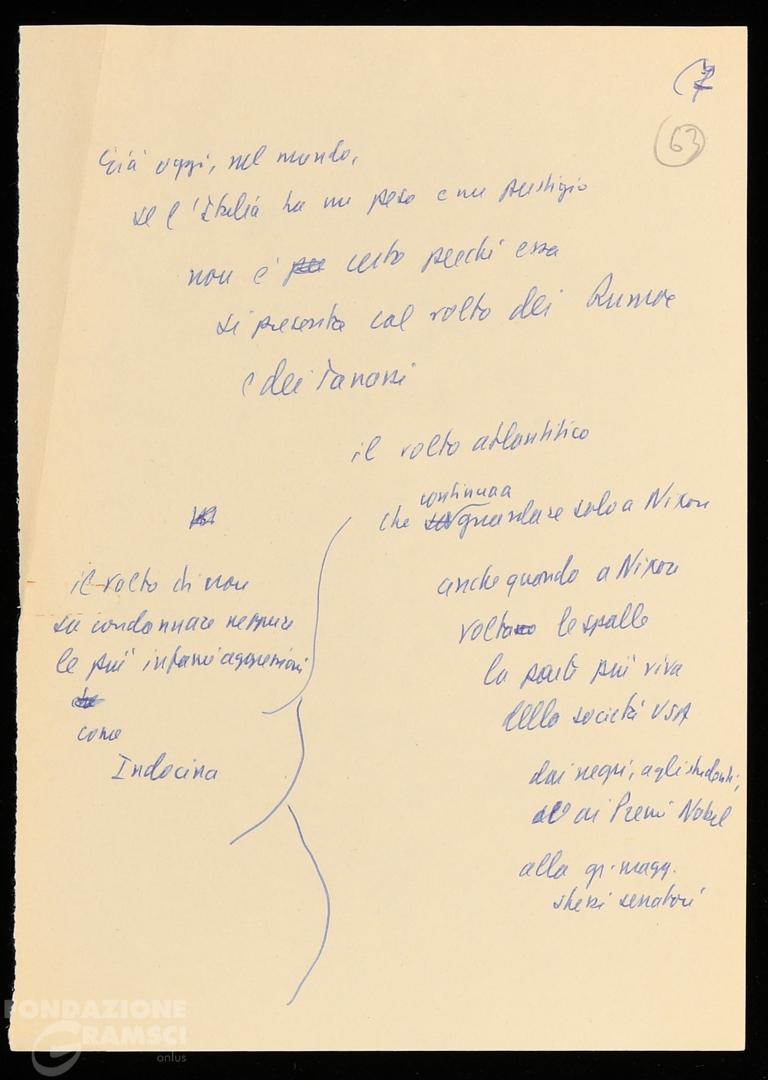 (7
63
Già oggi, nel mondo,
se l'Italia ha un peso e un prestigio
non è certo perché essa
si presenta col volto dei Rumor
e dei Tanassi
il volto atlantico
continua a
che guardare solo a Nixon
anche quando a Nixon
volta le spalle
la parte più viva
della società USA
dai negri, agli studenti,
ai Premi Nobel
alla gr. magg.
stessi senatori
il volto di non
sa condannare neppure
le più infami aggressioni
come
Indocina
FONDAZIONE
GRAMSCI
onlus